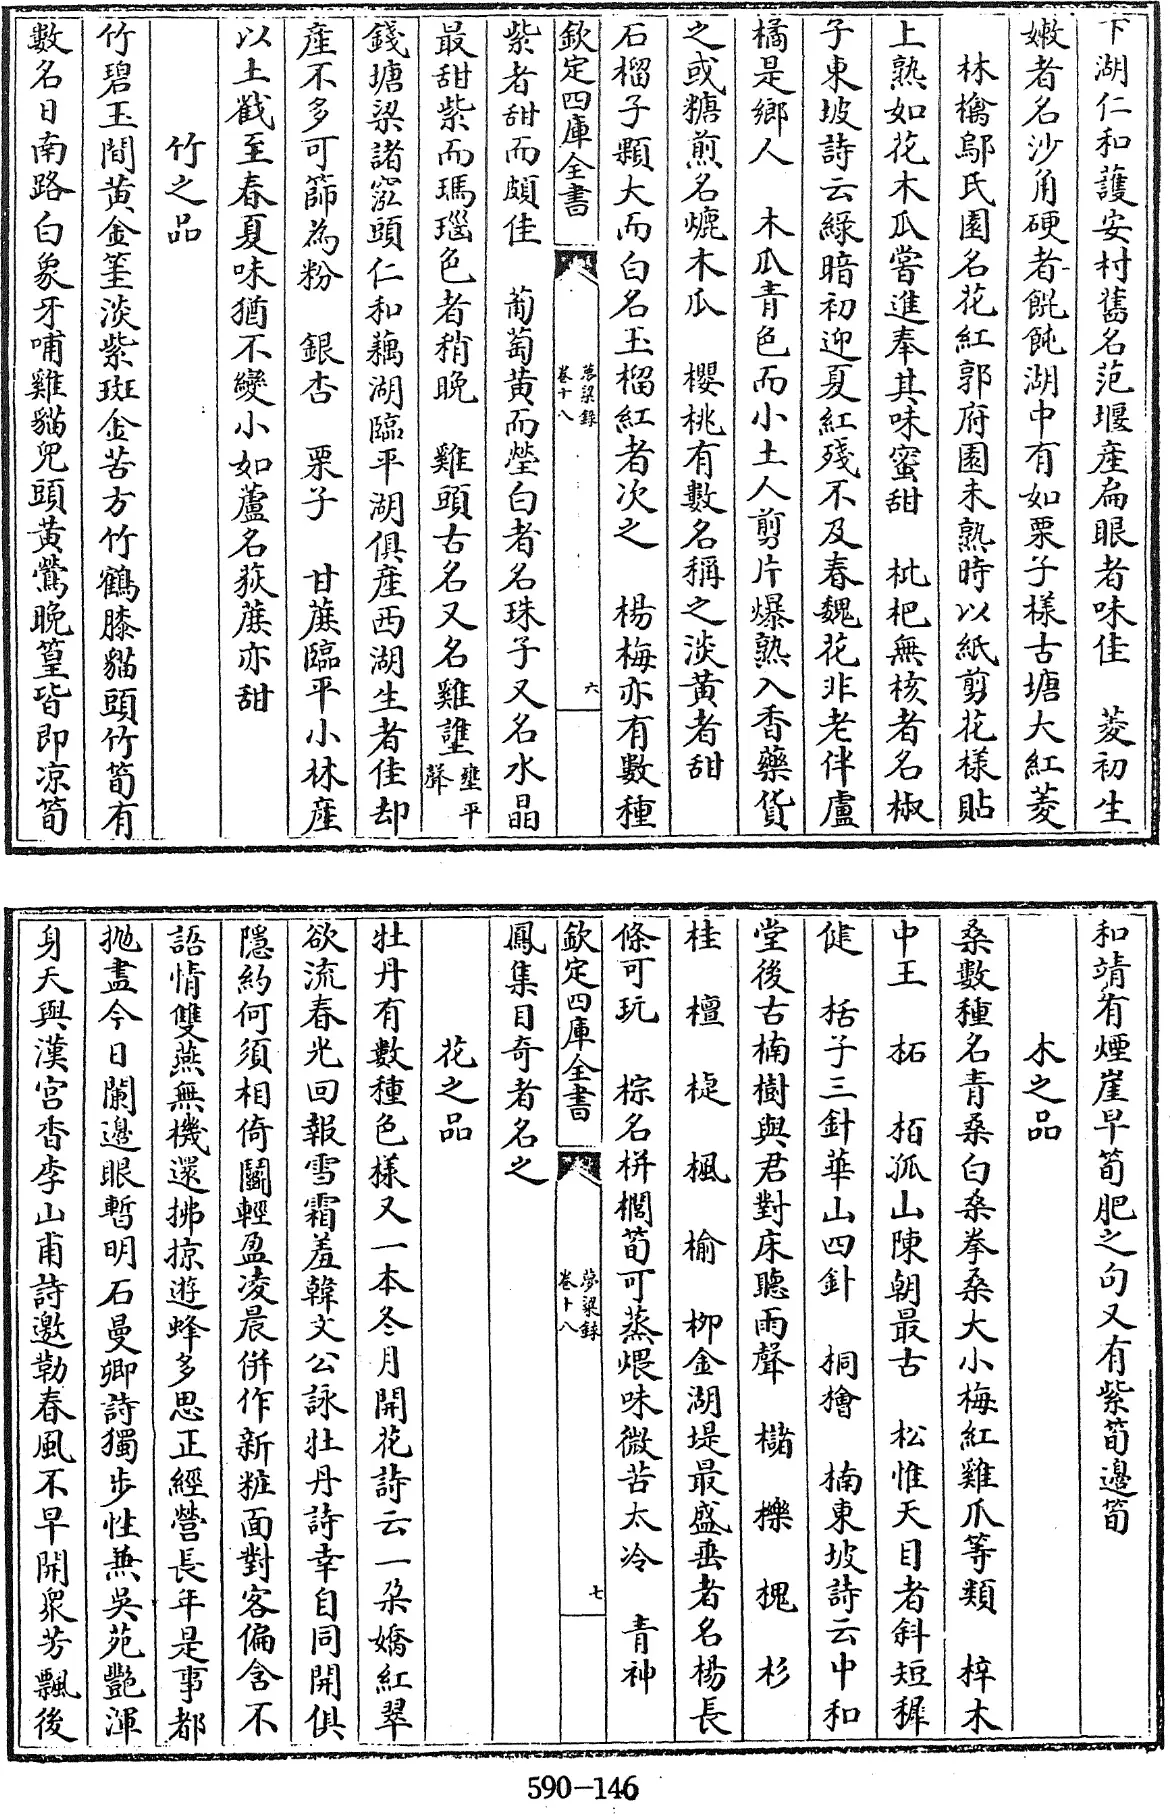 下湖仁和護安村舊名范堰産扁眼者味佳　菱初生
嫩者名沙角硬者餛飩湖中有如栗子樣古塘大紅菱
林檎鄔氏園名花紅郭府園未熟時以紙剪花樣貼
上熟如花木瓜嘗進奉其味蜜甜　枇杷無核者名椒
子東坡詩云綠暗初迎夏紅殘不及春魏花非老伴盧
橘是鄉人　木瓜青色而小土人剪片爆熟入香藥貨
之或糖煎名爊木瓜　櫻桃有數名稱之淡黃者甜
石榴子顆大而白名玉榴紅者次之　楊梅亦有數種
欽定四庫全書　夢粱錄　卷十八　六
紫者甜而頗佳　葡萄黃而瑩白者名珠子又名水晶
最甜紫而瑪瑙色者稍晚　雞頭古名又名雞壅壅平聲
錢塘梁諸窊頭仁和藕湖臨平湖俱産西湖生者佳却
産不多可篩為粉　銀杏　栗子　甘蔗臨平小林産
以土戳至春夏味猶不變小如蘆名荻蔗亦甜
竹之品
竹碧玉間黃金筀淡紫斑金苦方竹鶴膝貓頭竹筍有
數名曰南路白象牙哺雞貓兒頭黃鶯晚篁皆即凉筍
和靖有煙崖早筍肥之句又有紫筍邊筍
木之品
桑數種名青桑白桑拳桑大小梅紅雞爪等類　梓木
中王　柘　栢孤山陳朝最古　松惟天目者斜短稺
健　栝子三針華山四針　桐檜　楠東坡詩云中和
堂後古楠樹與君對床聽雨聲　櫧　櫟　槐　杉
桂　檀　槤　楓　榆　柳金湖堤最盛垂者名楊長
條可玩　棕名栟櫚筍可蒸煨味微苦太冷　青神
欽定四庫全書　夢粱錄　卷十八　七
鳳集目奇者名之
花之品
牡丹有數種色樣又一本冬月開花詩云一朵嬌紅翠
欲流春光回報雪霜羞韓文公詠牡丹詩幸自同開俱
隱約何須相倚鬬輕盈凌晨併作新粧面對客偏含不
語情雙燕無機還拂掠遊蜂多思正經營長年是事都
抛盡今日闌邊眼暫明石曼卿詩獨步性兼吳苑艷渾
身天與漢宮香李山甫詩邀勒春風不早開衆芳飄後
590-146